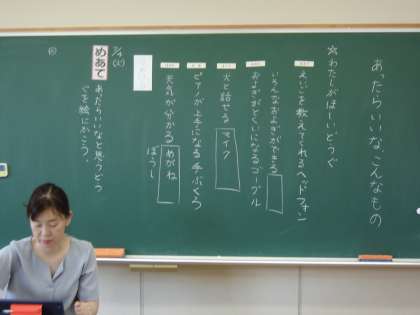 あったらいいな、こんなもの
☆わたしがほしいどうぐ
えいごを教えてくれるヘッドフォン
いろんなおよぎができる
およぎがとくいになるゴーグル
犬と話せるマイク
ピアノが上手になる手ぶくろ
天気が分かるめがね
ぼうし
めあて
あったらいいなと思うどう
ぐを絵にかこう。